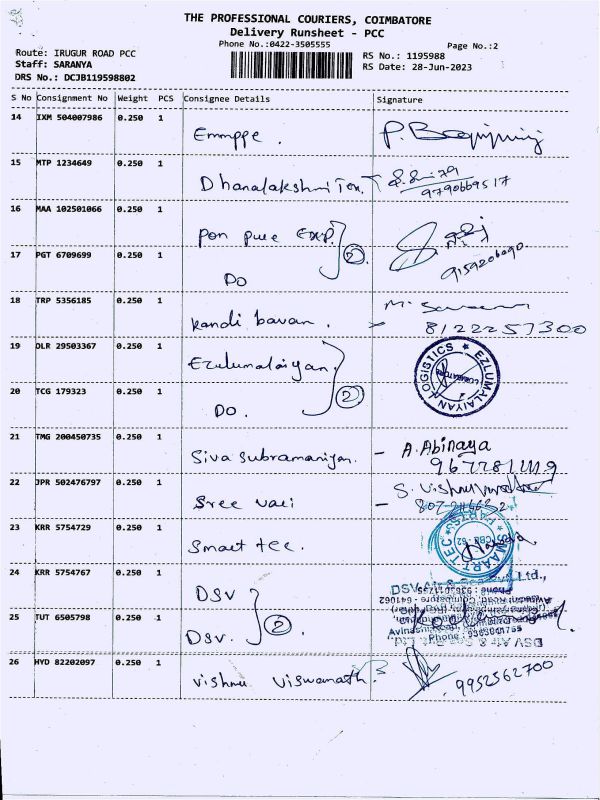 THE PROFESSIONAL COURIERS, COIMBATORE
Delivery Runsheet - PCC
Phone No.:0422-3505555
Page No.:2
Route: IRUGUR ROAD PCC
RS No.: 1195988
Staff: SARANYA
RS Date: 28-Jun-2023
DRS No.: DCJB119598802
S No Consignment No Weight PCS Consignee Details Signature
14 IXM 504007986 0.250 1 Emmppe.
15 MTP 1234649 0.250 1 Dhanalakshmi Tex. 9790669517
16 MAA 102501066 0.250 1 Pon pure Exp. 2
17 PGT 6709699 0.250 1 Do 9159206090
18 TRP 5356185 0.250 1 Kandi bavan. M. 8122257300
19 DLR 29503367 0.250 1 Ezulumalaiyan EZLUMALAIYAN LOGISTICS
20 TCG 179323 0.250 1 Do. 2
21 TMG 200450735 0.250 1 Siva Subramaniyan. - A. Abinaya
22 JPR 502476797 0.250 1 Sree vari - S.
23 KRR 5754729 0.250 1 Smart tec.
24 KRR 5754767 0.250 1 DSV
25 TUT 6505798 0.250 1 DSV. 2
26 HYD 82202097 0.250 1 Vishnu Viswanath 9952562700